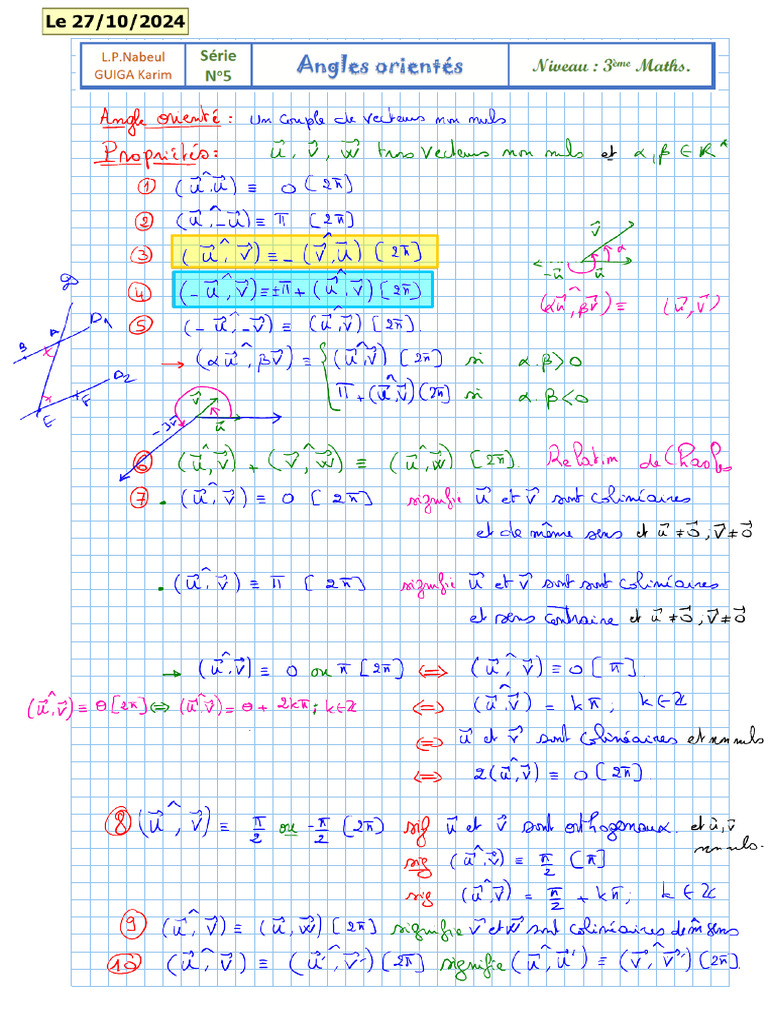 Le 27/10/2024
L.P.Nabeul
GUIGA Karim
Série
N°5
Angles orientés
Niveau : 3ème Maths.
Angle orienté : Un couple de vecteurs non nuls
Propriétés : u⃗, v⃗, w⃗ trois vecteurs non nuls et α, β ∈ ℝ*
① (u⃗^,u⃗) ≡ 0 [2π]
② (u⃗^,-u⃗) ≡ π [2π]
③ (u⃗^,v⃗) ≡ -(v⃗^,u⃗) [2π]
④ (-u⃗^,v⃗) ≡ ±π + (u⃗^,v⃗) [2π]
v⃗
α
-u⃗ u⃗
(αu⃗^,βv⃗) ≡ (u⃗,v⃗)
⑤ (-u⃗^,-v⃗) ≡ (u⃗^,v⃗) [2π].
→ (αu⃗^,βv⃗) ≡ { (u⃗^,v⃗) [2π] si α.β > 0
π + (u⃗^,v⃗) (2π) si α.β < 0
A D1
B
D2
E F
v⃗
u⃗
-3v⃗
⑥ (u⃗^,v⃗) + (v⃗^,w⃗) ≡ (u⃗^,w⃗) [2π] Relation de Chasles
⑦ . (u⃗^,v⃗) ≡ 0 [2π] signifie u⃗ et v⃗ sont colinéaires
et de même sens et u⃗ ≠ 0⃗ ; v⃗ ≠ 0⃗
. (u⃗^,v⃗) ≡ π [2π] signifie u⃗ et v⃗ sont sont colinéaires
et sens contraire et u⃗ ≠ 0⃗ ; v⃗ ≠ 0⃗
→ (u⃗^,v⃗) ≡ 0 ou π [2π] ⇔ (u⃗^,v⃗) ≡ 0 [π].
(u⃗^,v⃗) ≡ θ [2π] ⇔ (u⃗^,v⃗) = θ + 2kπ ; k∈ℤ ⇔ (u⃗^,v⃗) = kπ ; k∈ℤ
⇔ u⃗ et v⃗ sont colinéaires et non nuls
⇔ 2(u⃗^,v⃗) ≡ 0 [2π].
⑧ (u⃗^,v⃗) ≡ π/2 ou -π/2 [2π] sig u⃗ et v⃗ sont orthogonaux. et u⃗,v⃗
non nuls.
sig (u⃗^,v⃗) ≡ π/2 [π]
sig (u⃗^,v⃗) = π/2 + kπ ; k∈ℤ
⑨ (u⃗^,v⃗) ≡ (u⃗,w⃗) [2π] signifie v⃗ et w⃗ sont colinéaires de m̂ sens
⑩ (u⃗^,v⃗) ≡ (u⃗'^,v⃗') (2π) signifie (u⃗^,u⃗') ≡ (v⃗^,v⃗') (2π).